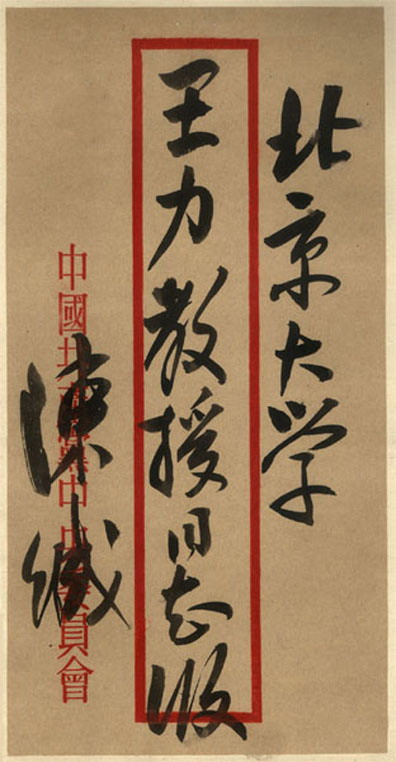 北京大学
王力教授同志收
陈缄
中國共產黨中央委員會